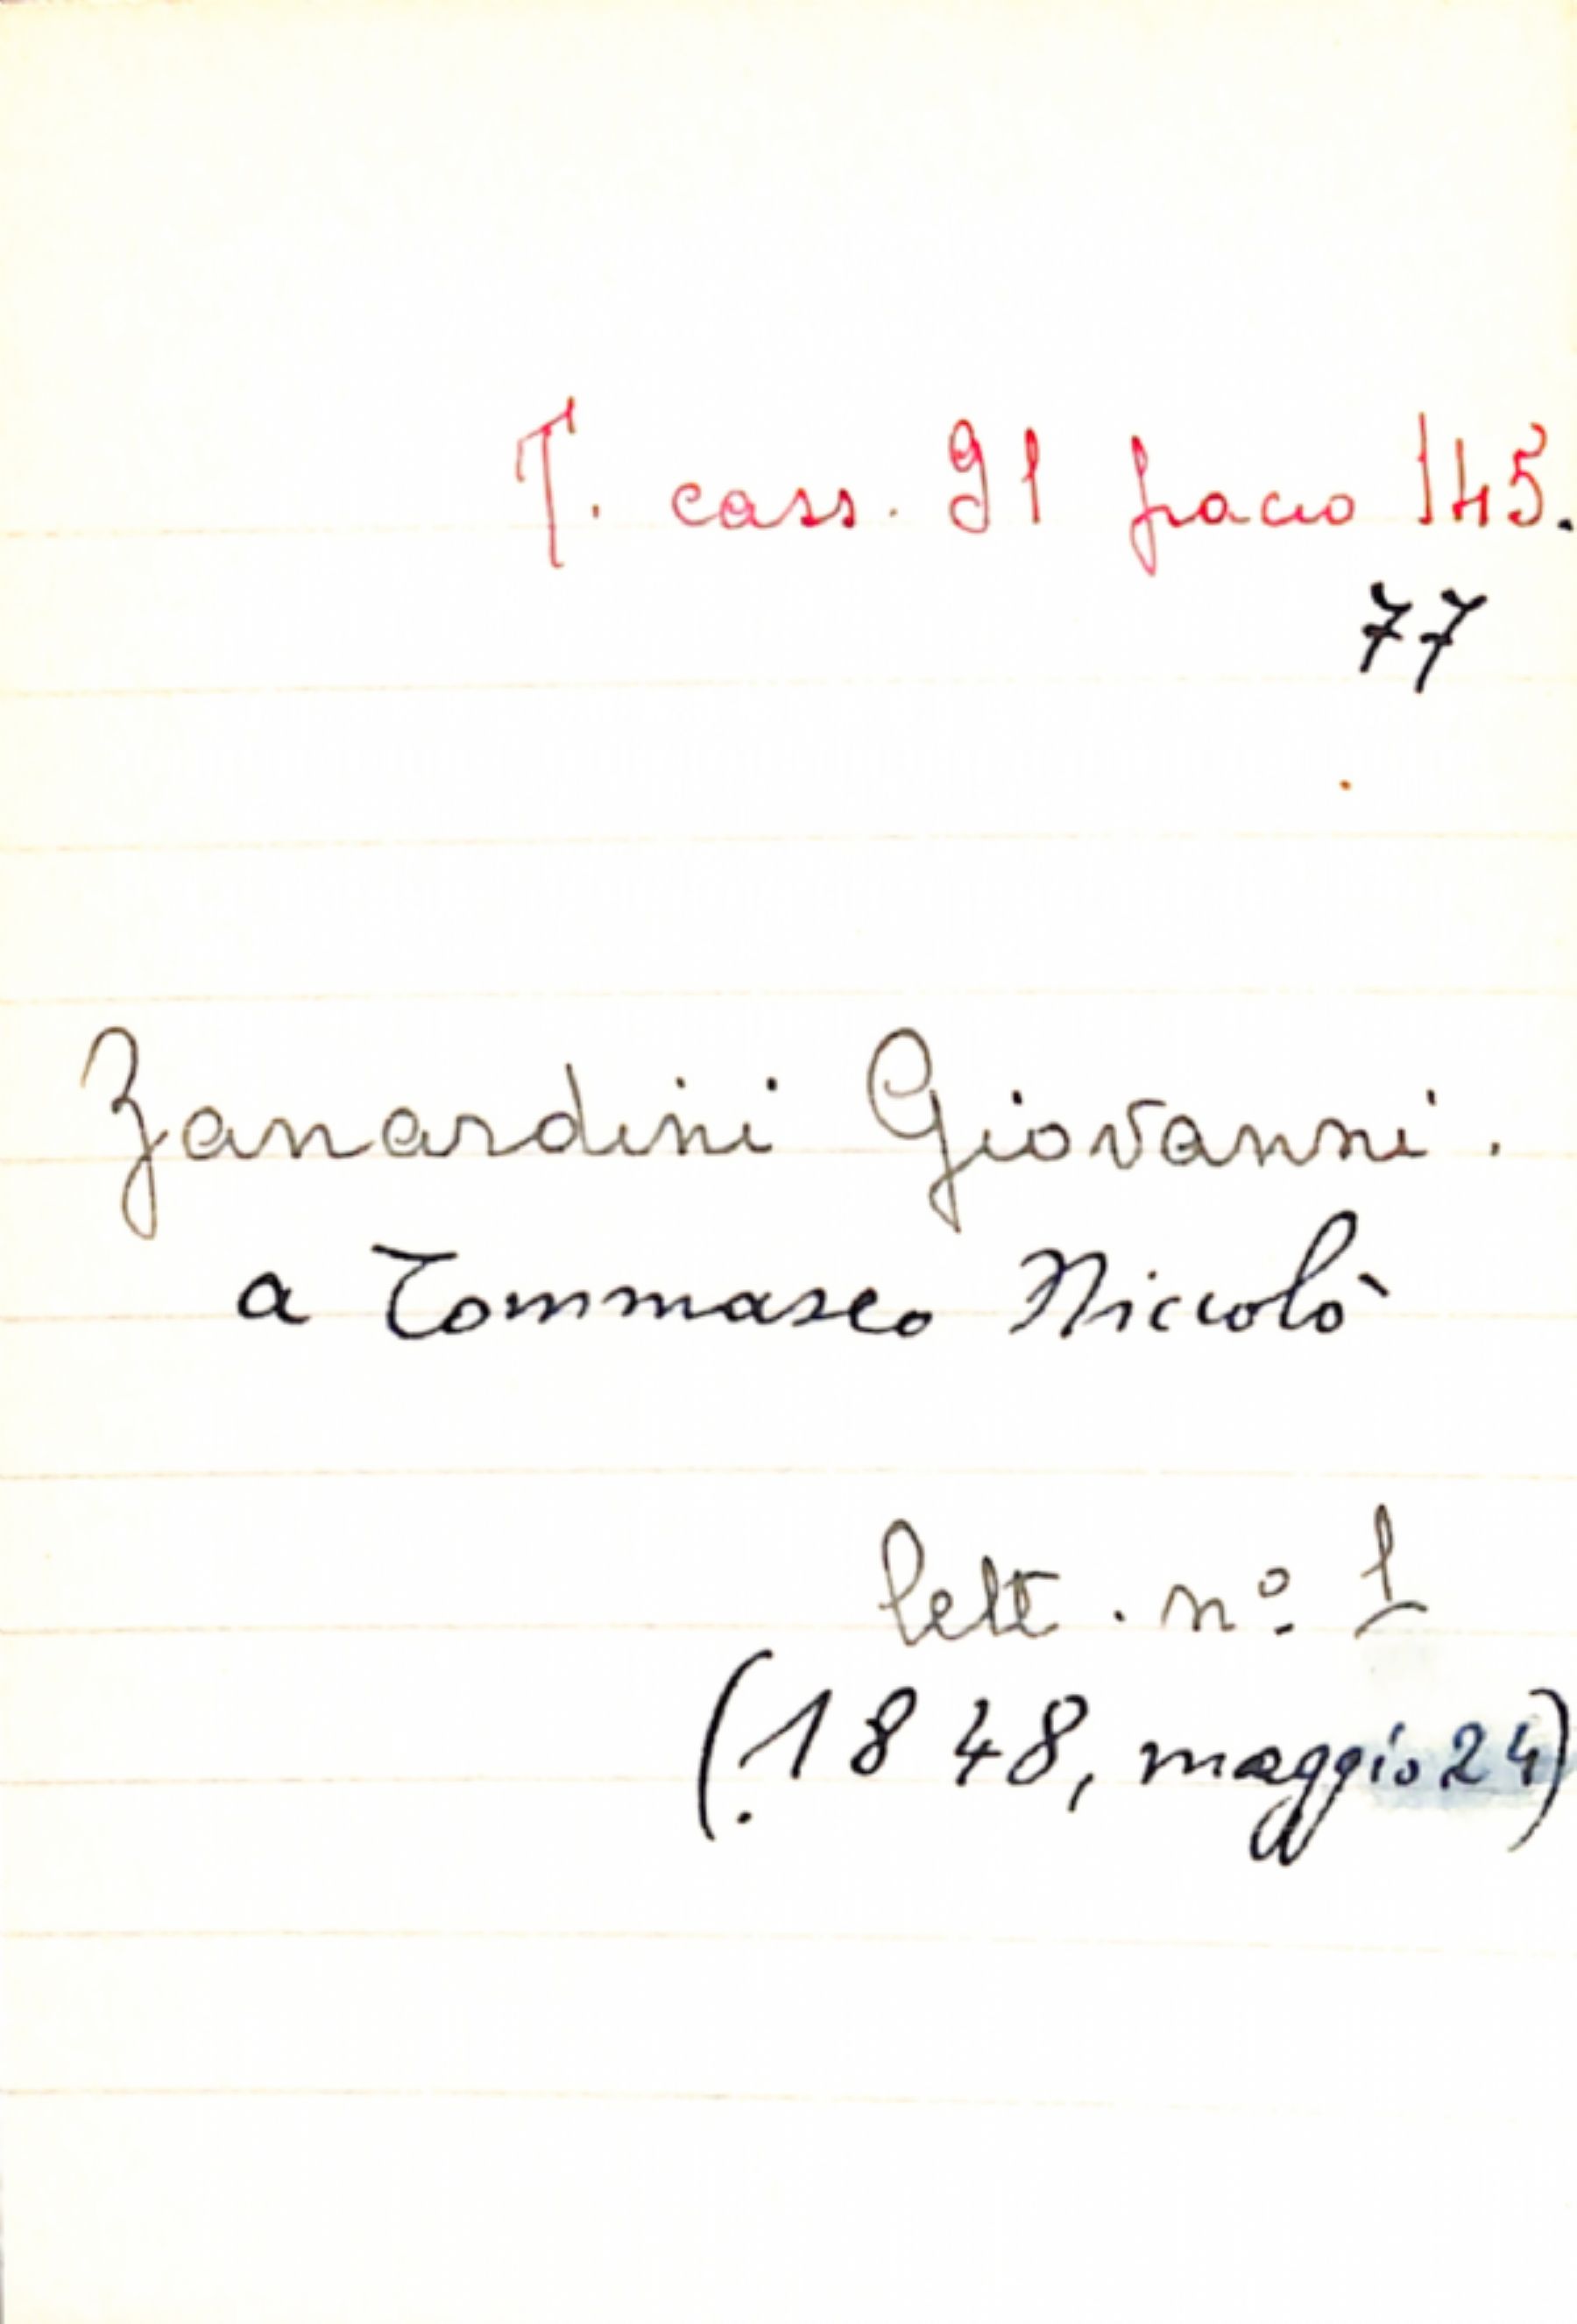 T. cass. 91 fracio 145.
77
Zanardini Giovanni.
a Tommaseo Niccolò
lett. nº 1
(1848, maggio 24)